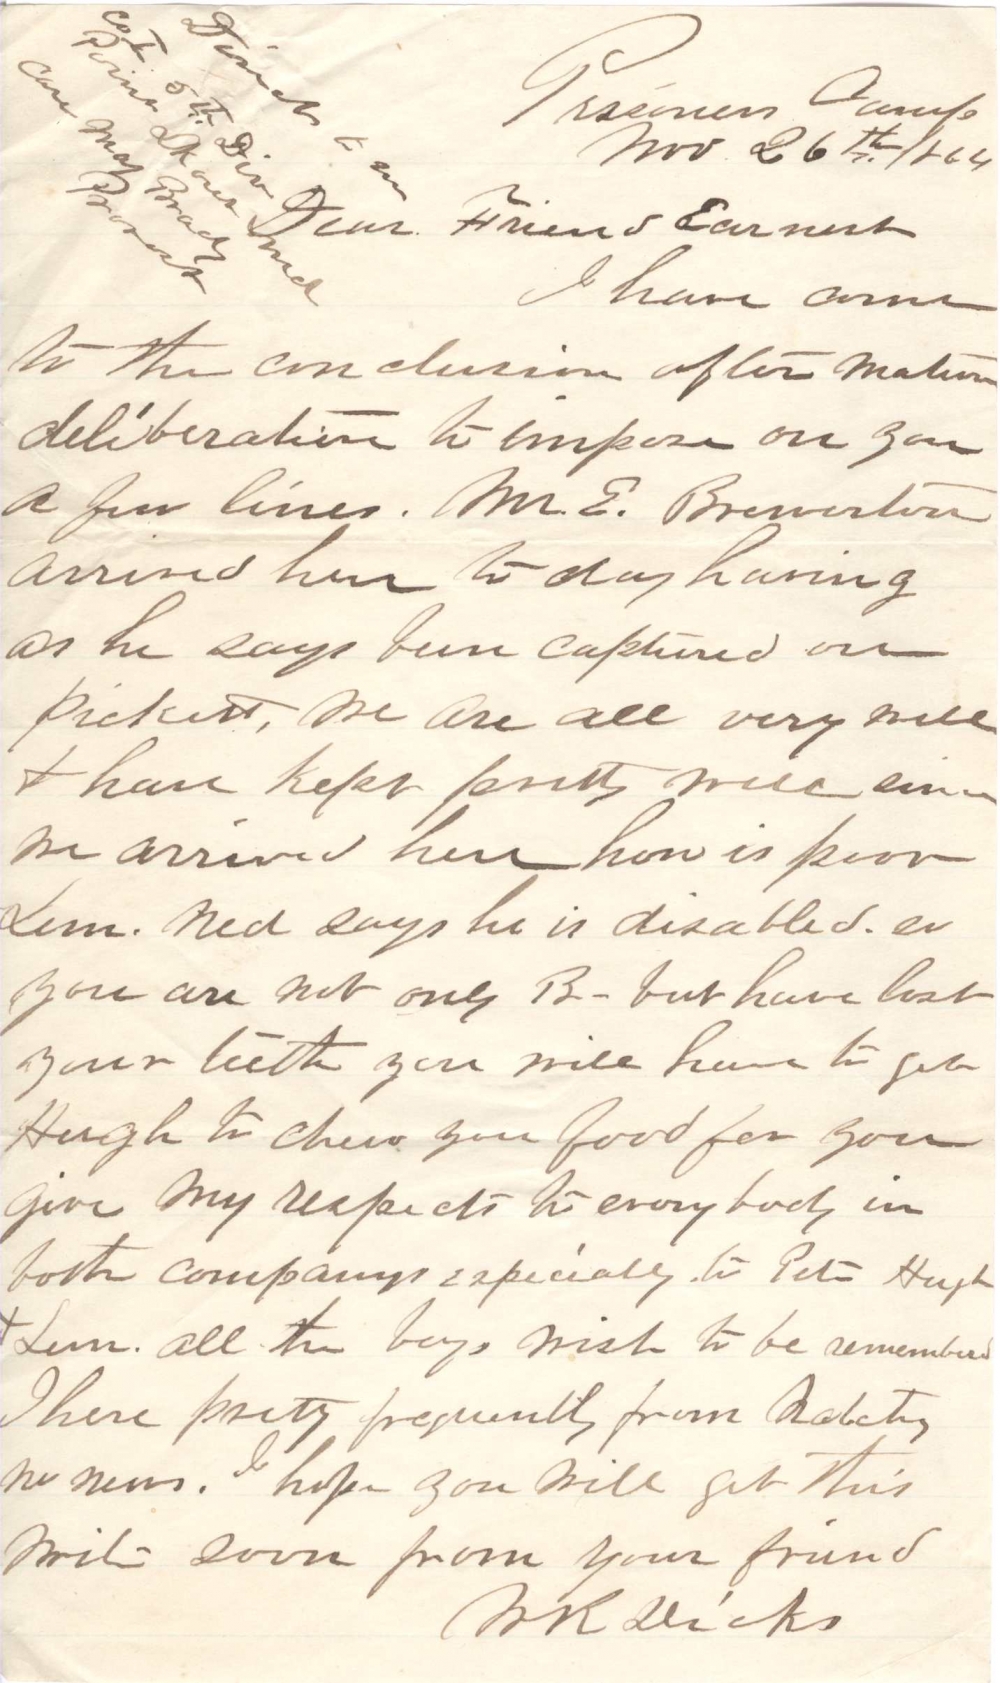 Direct to me
Co I 5th Div
Point Lk out Md
Care Maj Brady
Provost
Prisoners Camp
Nov 26th. /864
Dear. Friend Earnest
I have come
to the conclusion after mature
deliberation to impose on you
a few lines. Mr. E. Brewerton
arrived here to day having
as he says been captured on
Pickett, We are all very well
& have kept pretty well since
we arrived here how is poor
Lem. Ned says he is disabled. so
you are not only B- but have lost
your teeth you will have to get
Hugh to chew you food for you
give my respects to everybody in
both companys especially to Pete Hugh
& Lem. all the boys wish to be remembered
I here pretty frequently from Natchez
no news. I hope you will get this
write soon from your friend
W K Dicks